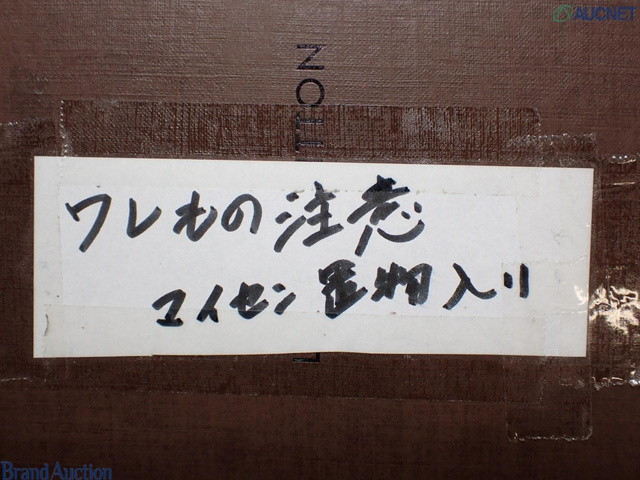 AUCNET
ワレもの注意
マイセン置物入り
Brand Auction